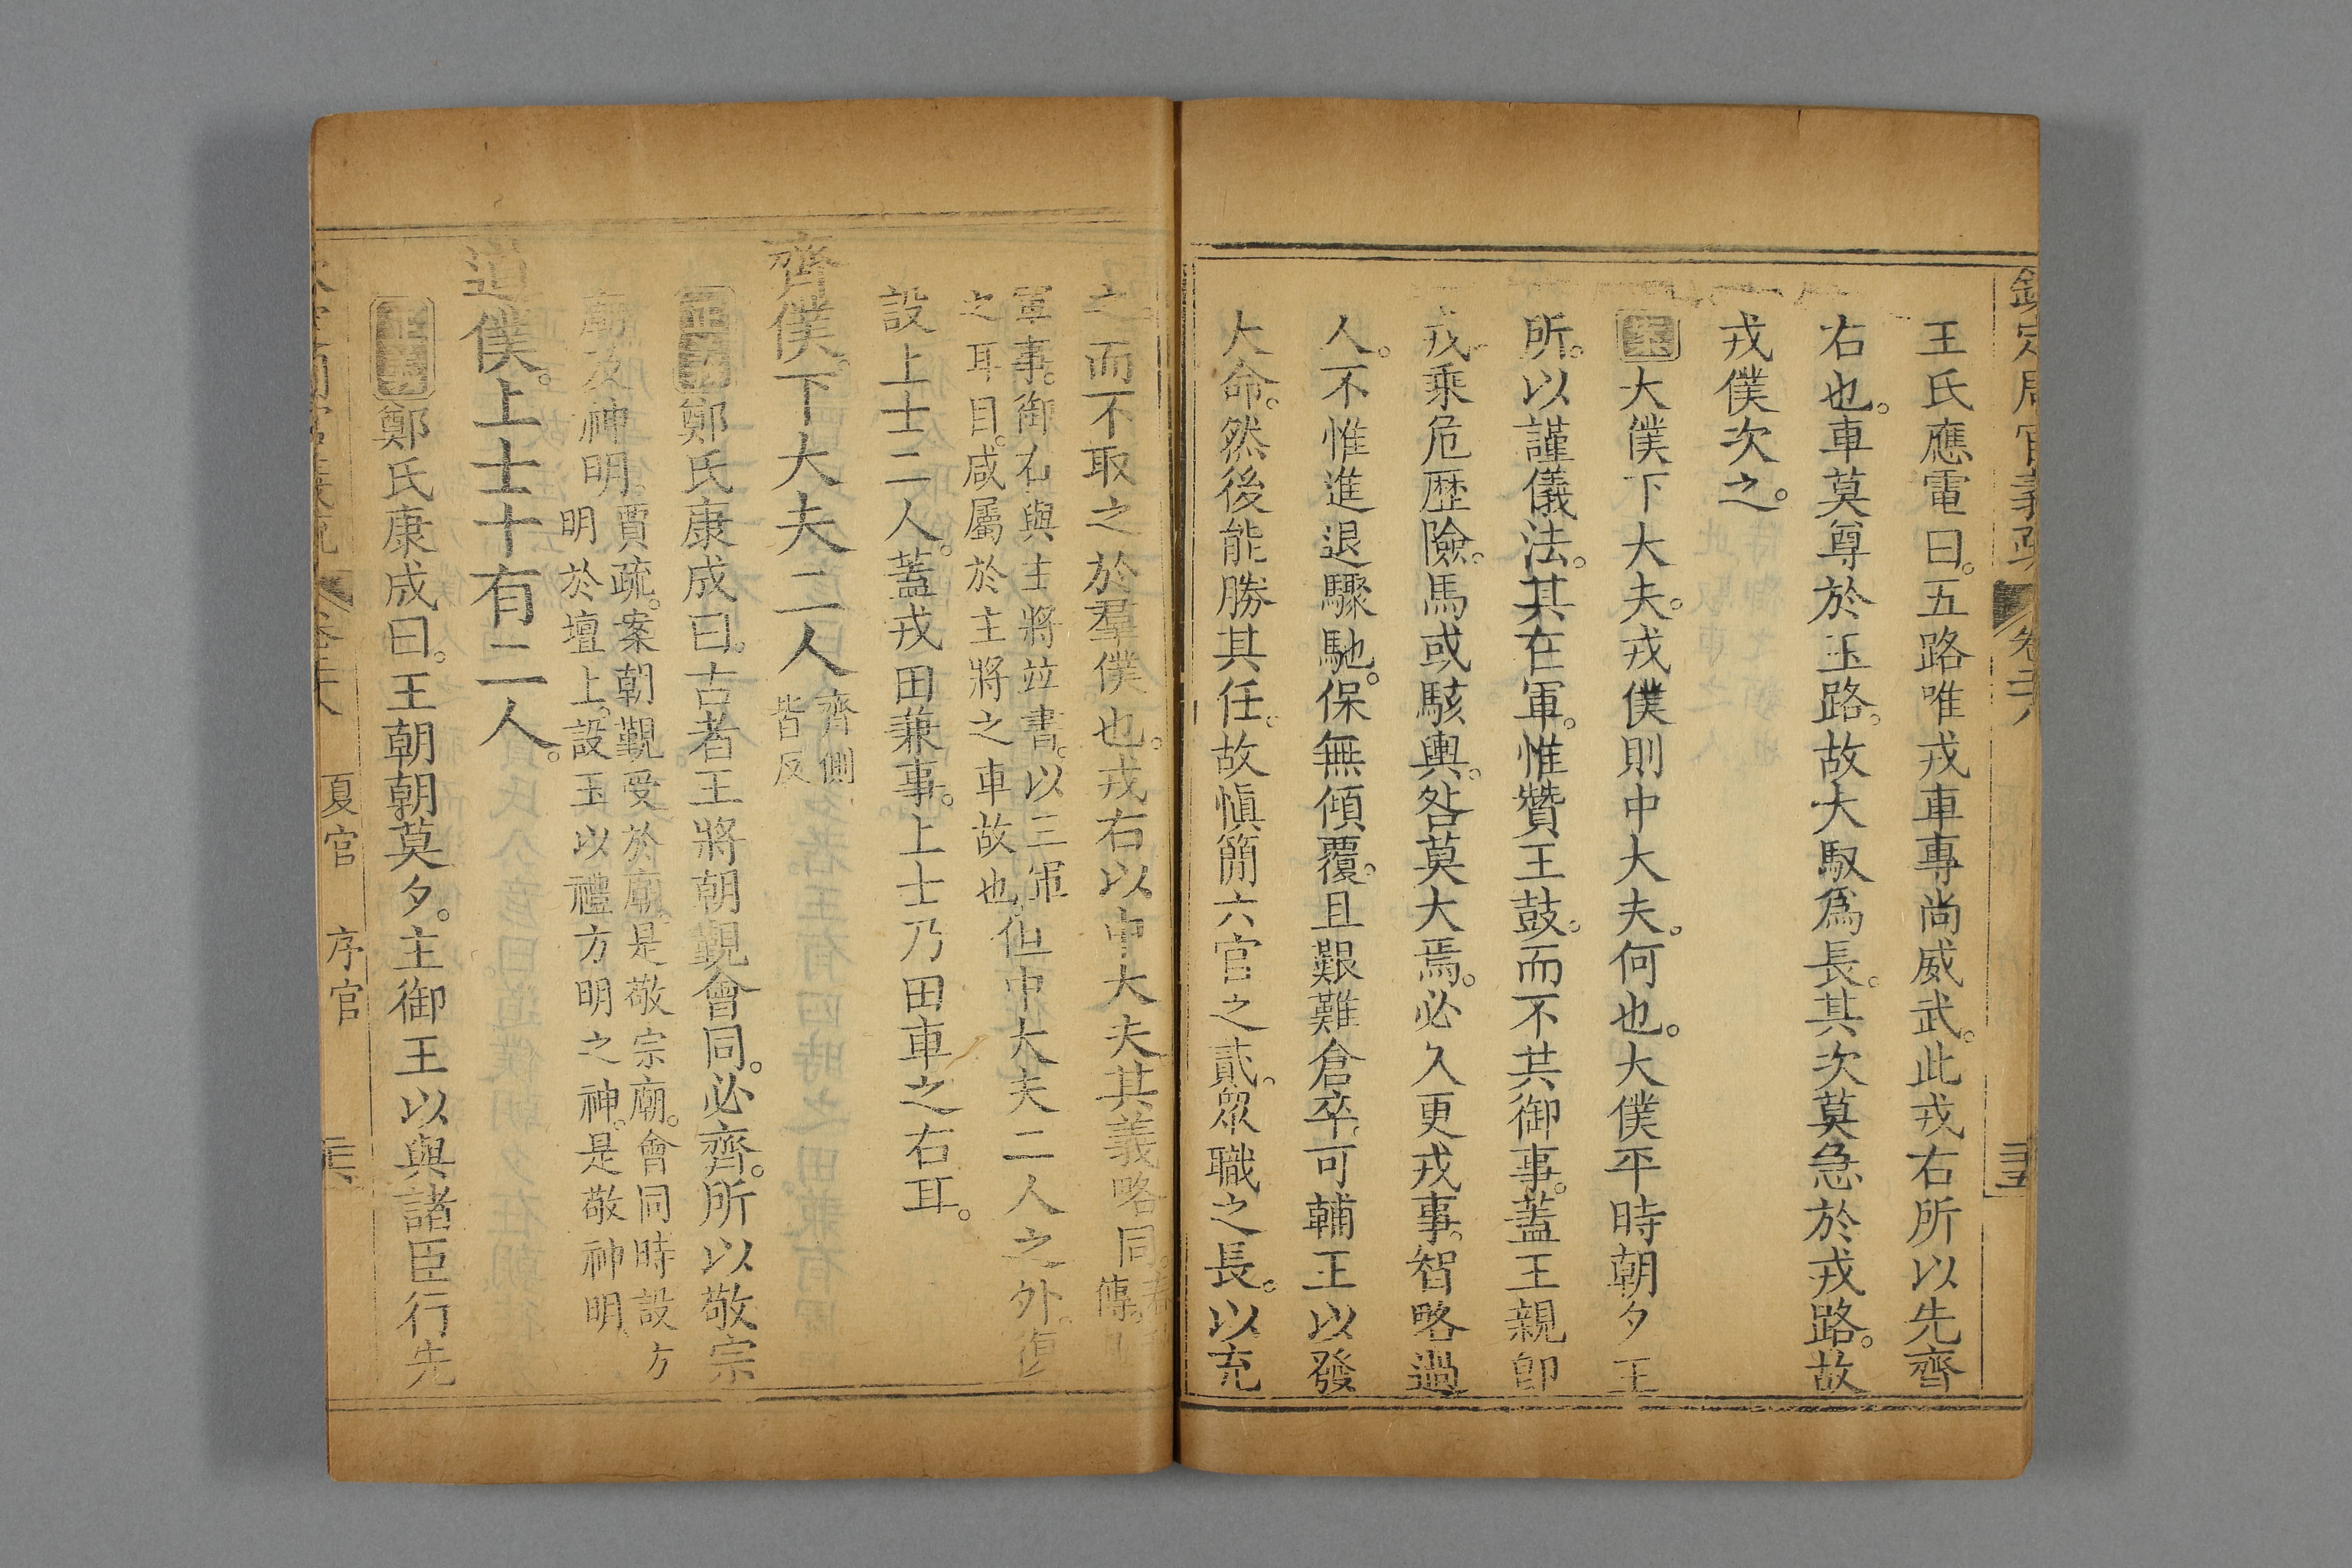 欽定周官義疏 卷二十八 三五
王氏應電曰。五路唯戎車專尚威武。此戎右所以先齊
右也。車莫尊於玉路。故大馭爲長。其次莫急於戎路。故
戎僕次之。
案大僕下大夫。戎僕則中大夫。何也。大僕平時朝夕王
所。以謹儀法。其在軍。惟贊王鼓。而不共御事。蓋王親卽
戎。乘危歷險。馬或駭輿。咎莫大焉。必久更戎事。智略過
人。不惟進退驟馳。保無傾覆。且艱難倉卒。可輔王以發
大命。然後能勝其任。故愼簡六官之貳。眾職之長。以充
之。而不取之於羣僕也。戎右以中大夫其義略同。春傳。
軍事。御右與主將竝書。以三軍
之耳目。咸屬於主將之車故也。但中大夫二人之外。復
設上士二人。蓋戎田兼事。上士乃田車之右耳。
齊僕。下大夫二人 齊側
皆反
正義鄭氏康成曰。古者王將朝覲會同。必齊。所以敬宗
廟及神明。賈疏。案朝覲受於廟。是敬宗廟。會同時設方
明於壇上。設玉以禮方明之神。是敬神明。
道僕。上士十有二人。
正義鄭氏康成曰。王朝朝莫夕。主御王以與諸臣行先
夏官 序官